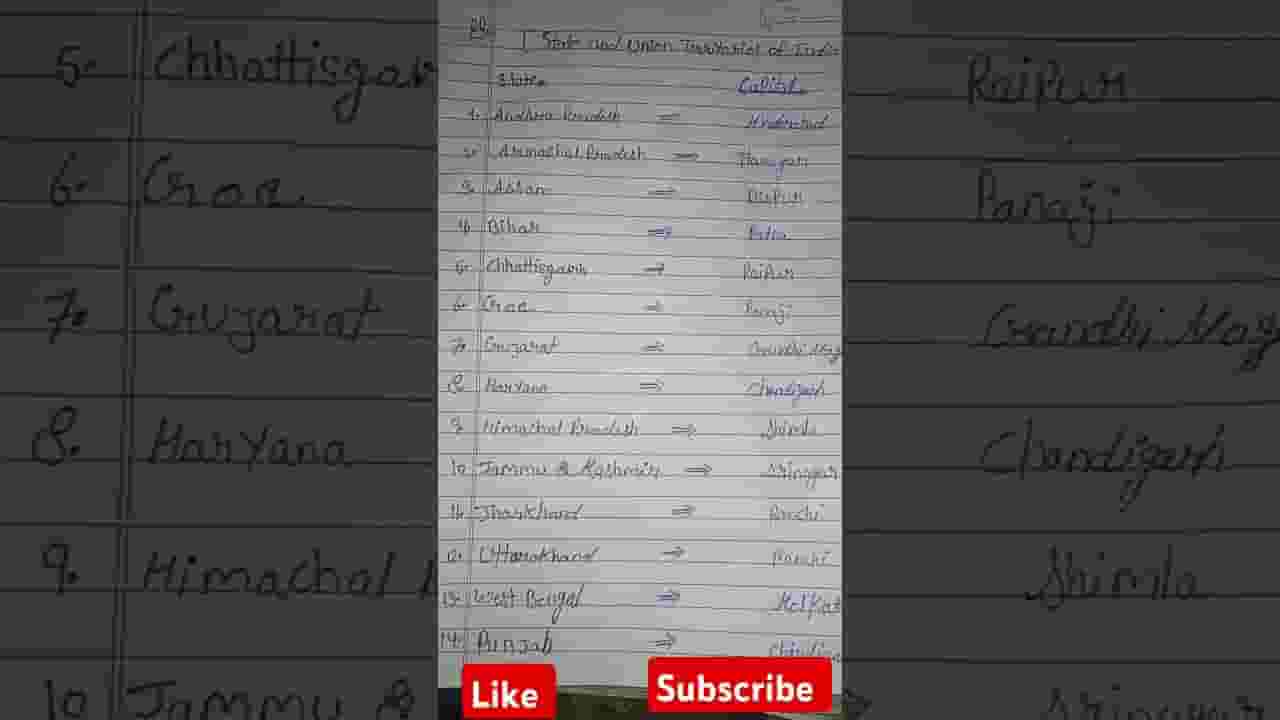 State and Union Territories of India
State Capital
1. Andhra Pradesh ⇒ Hyderabad
2. Arunachal Pradesh ⇒ Itanagar
3. ⇒ DisPur
4. Bihar ⇒
5. Chhattisgarh ⇒ RaiPur
6. Goa ⇒ Panaji
7. Gujarat ⇒ Gandhi Nag
8. HarYana ⇒ Chandigarh
9. Himachal Pradesh ⇒ Shimla
10 Jammu & Kashmir ⇒ Srinagar
11. Jharkhand ⇒ Ranchi
12. Uttarakhand ⇒ Ranchi
13. West Bengal ⇒ Kolkat
14. PUnjab ⇒
Like Subscribe
5. Chhattisgar RaiPur
6. Goa. Panaji
7. Gujarat Gandhi Nag
8. HarYana Chandigarh
9. Himachal Shimla
10 Jammu & Srinagar